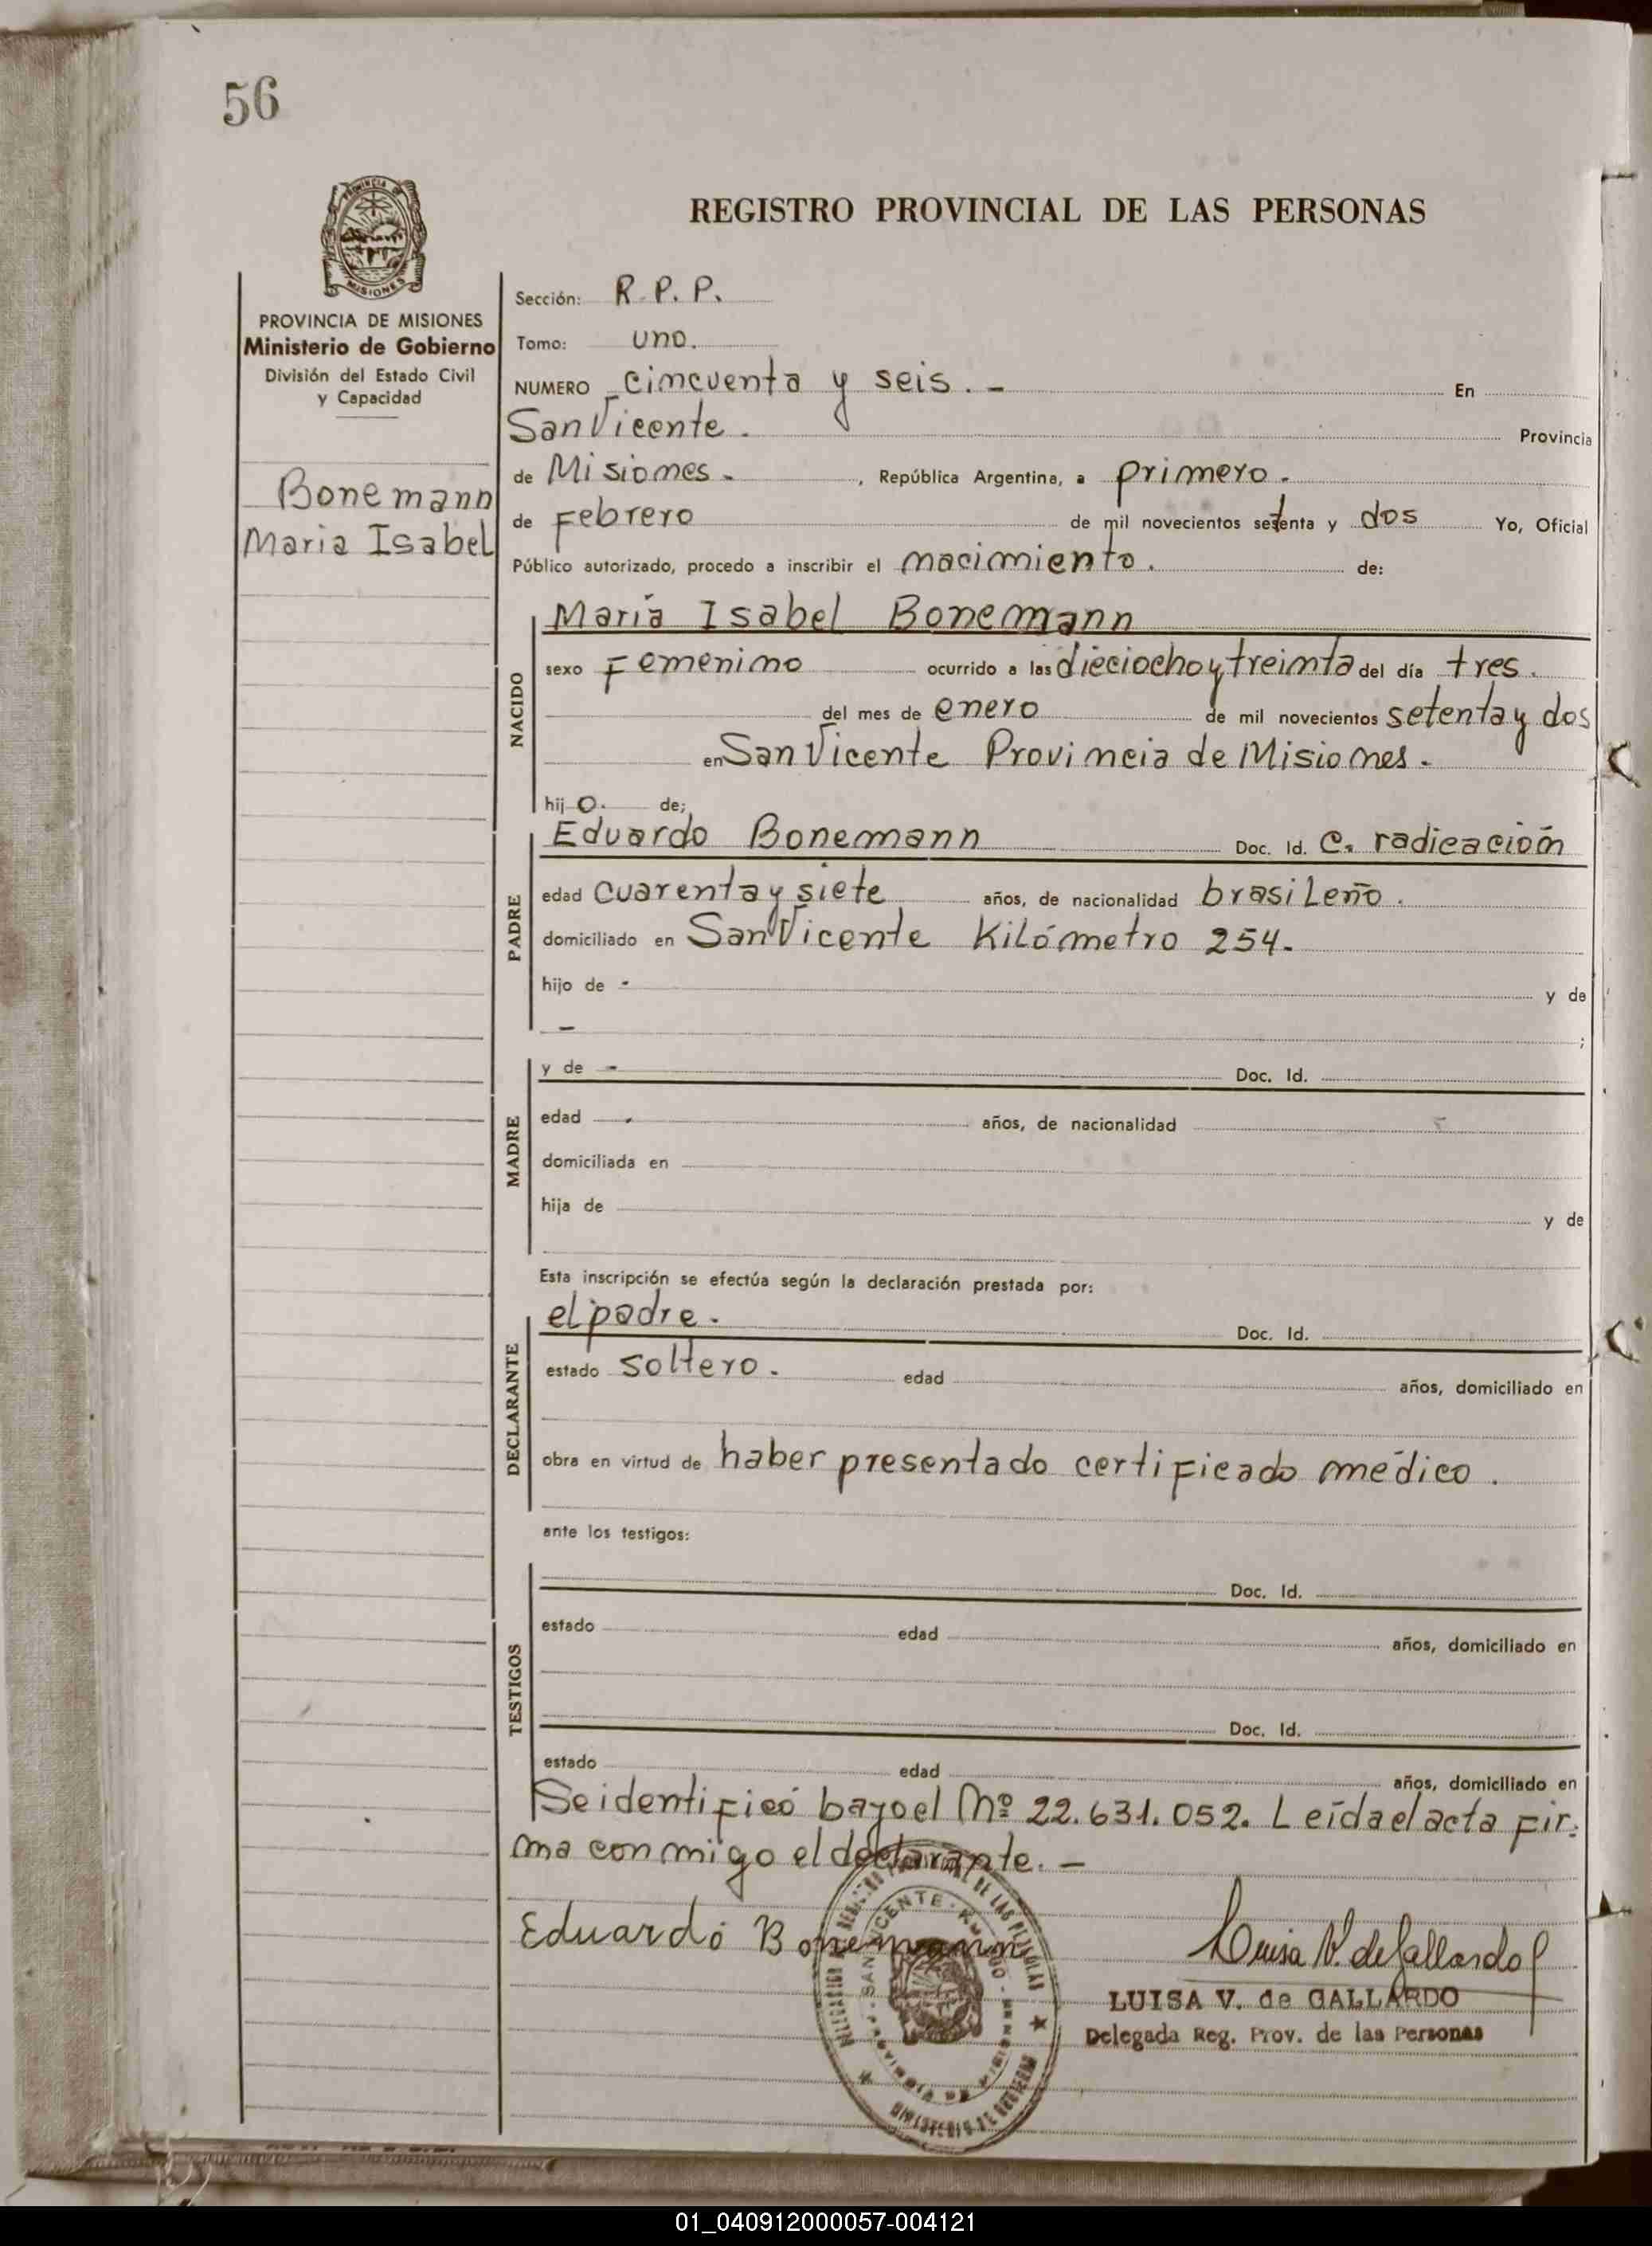 56
PROVINCIA DE
MISIONES
REGISTRO PROVINCIAL DE LAS PERSONAS
PROVINCIA DE MISIONES
Ministerio de Gobierno
División del Estado Civil
y Capacidad
Bonemann
Maria Isabel
Sección: R.P.P.
Tomo: uno.
NUMERO cincuenta y seis. - En
San Vicente. Provincia
de Misiones. , República Argentina, a primero.
de Febrero de mil novecientos setenta y dos Yo, Oficial
Público autorizado, procedo a inscribir el nacimiento. de:
NACIDO
María Isabel Bonemann
sexo Femenino ocurrido a las dieciocho y treinta del día tres.
del mes de enero de mil novecientos setenta y dos
en San Vicente Provincia de Misiones.
hijo. de;
PADRE
Eduardo Bonemann Doc. Id. C. radicación
edad cuarenta y siete años, de nacionalidad brasileño.
domiciliado en San Vicente Kilómetro 254.
hijo de - y de
- ;
MADRE
y de - Doc. Id.
edad años, de nacionalidad
domiciliada en
hija de y de
Esta inscripción se efectúa según la declaración prestada por:
DECLARANTE
el padre. Doc. Id.
estado soltero. edad años, domiciliado en
obra en virtud de haber presentado certificado médico.
ante los testigos:
TESTIGOS
Doc. Id.
estado edad años, domiciliado en
Doc. Id.
estado edad años, domiciliado en
Se identificó bayo el Nº 22.631.052. Leída el acta fir-
ma conmigo el declarante. -
Eduardo Bonemann
Luisa V. de Gallardo
LUISA V. de GALLARDO
Delegada Reg. Prov. de las Personas
SAN VICENTE
MINISTERIO DE GOBIERNO
01_040912000057-004121